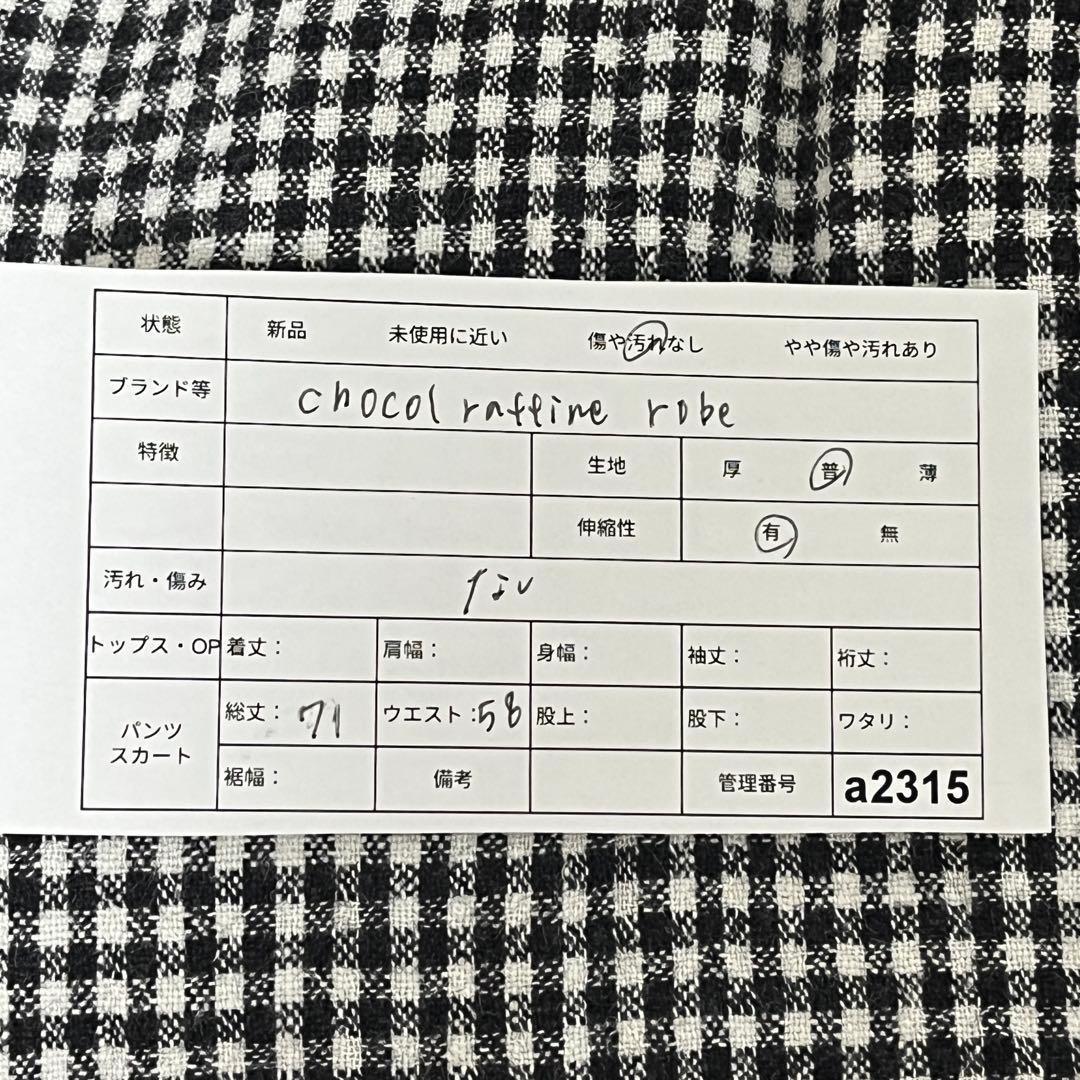 状態 新品 未使用に近い 傷や汚れなし やや傷や汚れあり
ブランド等 chocol raffine robe
特徴 生地 厚 普 薄
伸縮性 有 無
汚れ・傷み なし
トップス・OP 着丈： 肩幅： 身幅： 袖丈： 裄丈：
パンツ スカート 総丈：71 ウエスト：58 股上： 股下： ワタリ：
裾幅： 備考 管理番号 a2315